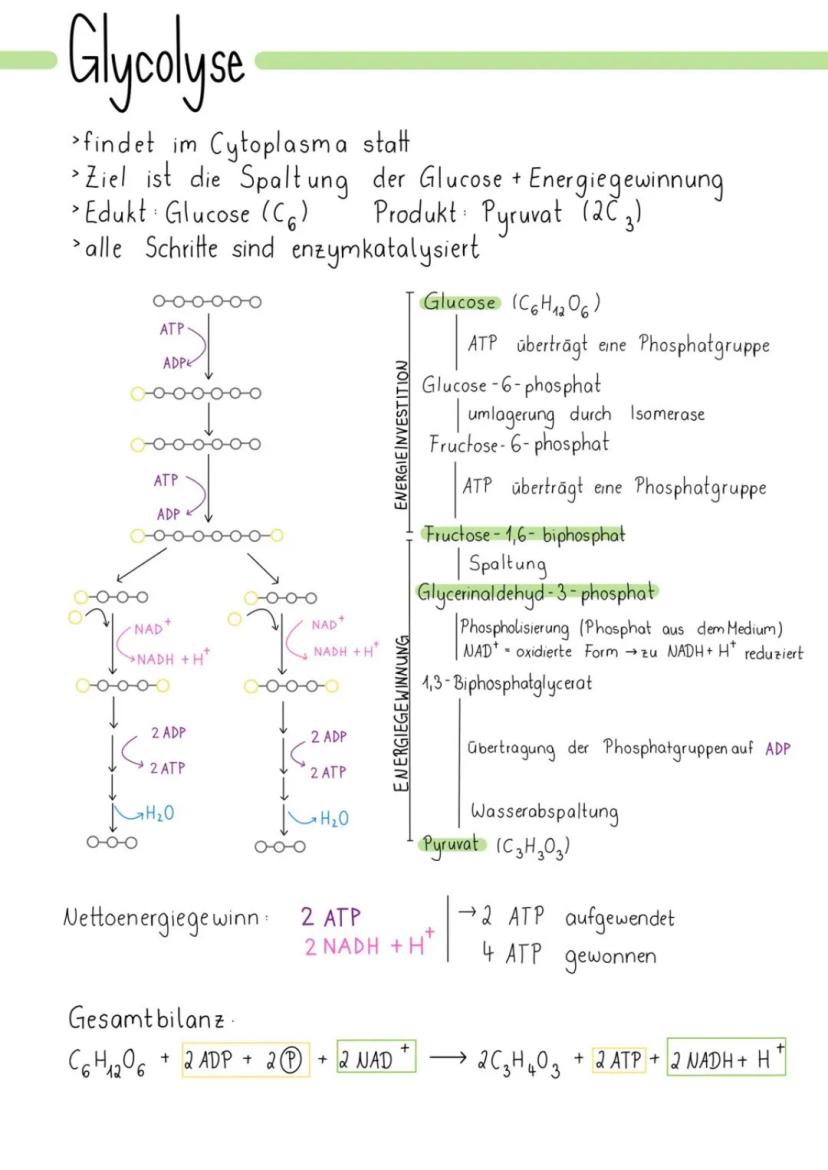 Glycolyse
>findet im Cytoplasma statt
>Ziel ist die Spaltung der Glucose + Energiegewinnung
>Edukt: Glucose (C₆) Produkt: Pyruvat (2C₃)
>alle Schritte sind enzymkatalysiert
ATP
ADP
ATP
ADP
NAD⁺
NADH + H⁺
NAD⁺
NADH + H⁺
2 ADP
2 ATP
2 ADP
2 ATP
H₂O
H₂O
ENERGIEINVESTITION
ENERGIEGEWINNUNG
Glucose (C₆H₁₂O₆)
ATP überträgt eine Phosphatgruppe
Glucose-6-phosphat
umlagerung durch Isomerase
Fructose-6-phosphat
ATP überträgt eine Phosphatgruppe
Fructose-1,6-biphosphat
Spaltung
Glycerinaldehyd-3-phosphat
Phospholisierung (Phosphat aus dem Medium)
NAD⁺ = oxidierte Form → zu NADH + H⁺ reduziert
1,3-Biphosphatglycerat
Übertragung der Phosphatgruppen auf ADP
Wasserabspaltung
Pyruvat (C₃H₃O₃)
Nettoenergiegewinn: 2 ATP → 2 ATP aufgewendet
2 NADH + H⁺ 4 ATP gewonnen
Gesamtbilanz:
C₆H₁₂O₆ + 2 ADP + 2 Ⓟ + 2 NAD⁺ → 2C₃H₄O₃ + 2 ATP + 2 NADH + H⁺